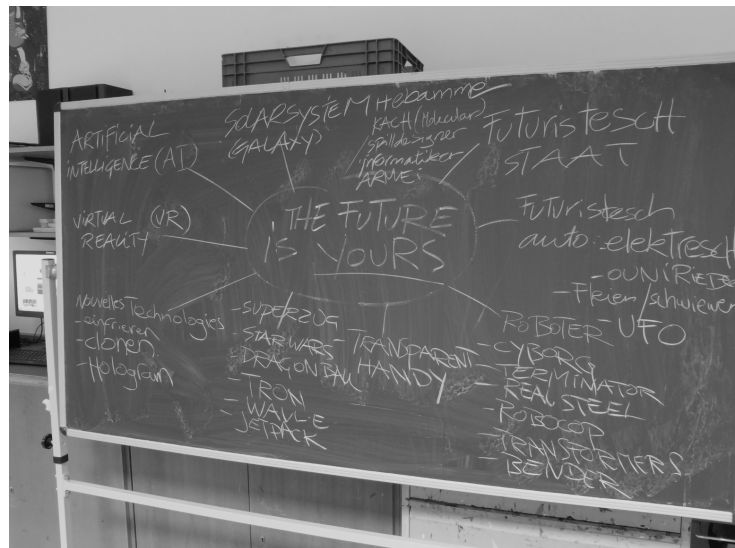 ARTIFICIAL
INTELLIGENCE (AI)
SOLARSYSTEM
(GALAXY)
Hebamme
KACH (Molecular)
Spilldesigner
informatiker
ARMEI
FUTURISTESCH
STAAT
VIRTUAL (VR)
REALITY
THE FUTURE
is YOURS
FUTURISTESCH
auto: elektresch
- OUNI RIEDER
- Fléien / schwiewen
Nouvelles Technologies
- einfrieren
- clonen
- Hologram
- SUPERZUG
- STAR WARS
- DRAGONBALL
- TRON
- WALL-E
- JETPACK
- TRANSPARENT
HANDY
ROBOTER - UFO
- CYBORG
- TERMINATOR
- REAL STEEL
- ROBOCOP
- TRANSFORMERS
- BENDER